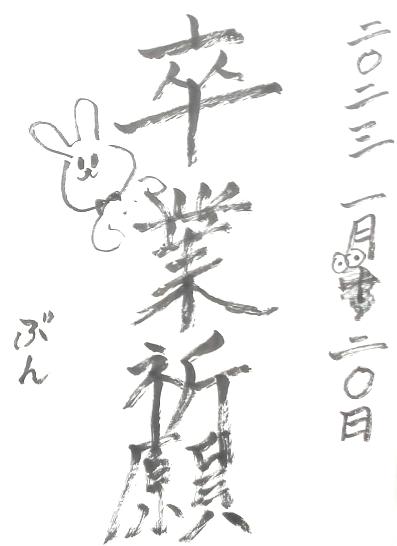 二〇二三 一月 二〇日
卒業祈願
ぶん